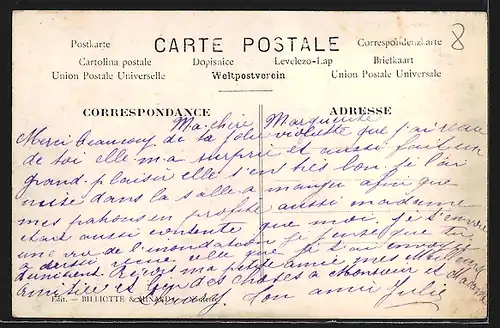 8
Postkarte CARTE POSTALE Correspondenzkarte
Cartolina postale Dopisnice Levelezo-Lap Briefkaart
Union Postale Universelle Weltpostverein Union Postale Universale
CORRESPONDANCE ADRESSE
Ma chère Marguerite
Merci beaucoup de ta jolie violette que j'ai reçu
de toi elle m'a surprit et aussi fait un
grand plaisir elle s'en très bon je l'ai
mise dans la salle a manger afin que
mes patrons en profite aussi madame
était aussi contente que moi, je t'envoie
une vue de l'inondation je pense que tu
a dessus une elle que je t'ai envoyé
Reçois ma petite amie mes
amitiée et des choses a Monsieur et Madame
ton amie Julie
Edit. — BILLIOTTE &